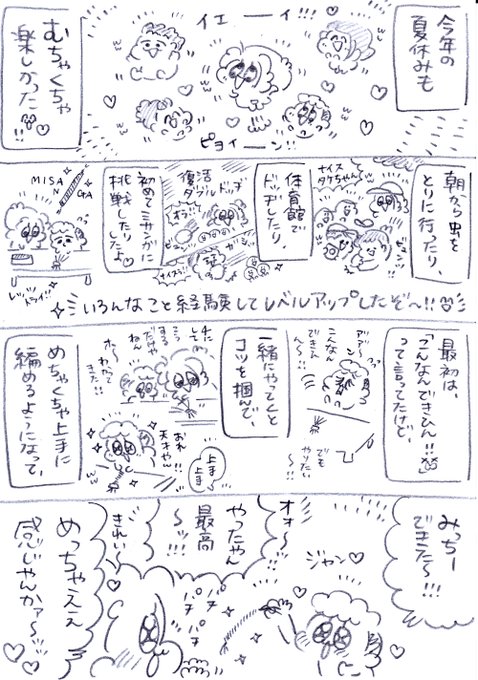 今年の
夏休みも
イエーーイ!!!
むちゃくちゃ
楽しかった!!
ピョイーーン!!
朝から虫を
とりに行ったり、
ナイス
タケちゃん
体育館で
ドッヂしたり
復活
ダブルドッヂ
初めてミサンガに
挑戦したり
したよ。
MISAN
GA
レッツ
トライ!!
いろんなこと経験してレベルアップしたぞ〜!!
最初は、
「こんなんできひん!!」
って言ってたけど、
こんなん
できひん
ん〜!!
でも
やりたい
〜!!
一緒にやってくと
コツを掴んで、
わかって
きた!!
おれ
天才やん
!!
上手
上手
めちゃくちゃ上手に
編めるようになって、
みっちー
できた〜!!!
ジャン
オォ〜
やったやん
最高
〜ッ!!!
きれい〜
パチ
パチ
パチ
めっちゃええ
感じゃんかァ〜ッ